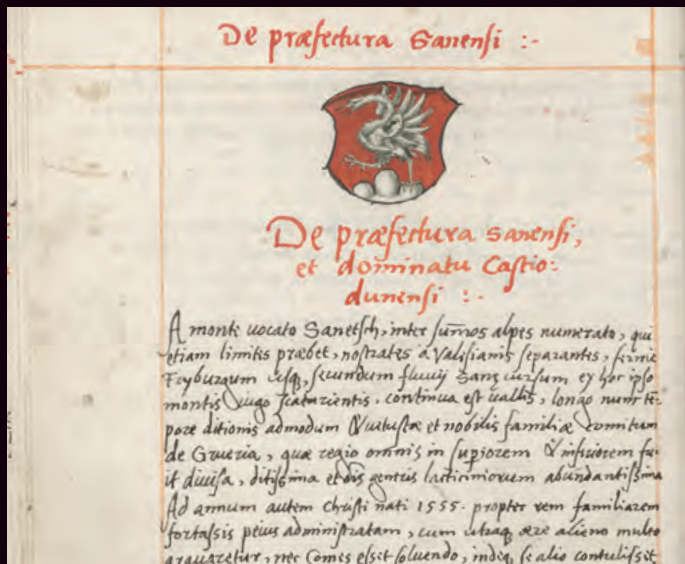 De præfectura Sanensi :-
De præfectura Sanensi,
et dominatu Castio:
dunensi :-
A monte uocato Sanetsch, inter sum̄os alpes numerato, qui
etiam limites præbet, nostrates a Valesianis separantes, ferme
Fryburgum usq, secundum fluuij Sanę cursum ex hoc ipso
montis iugo scaturientis, continua est uallis, longo nunc tē-
pore ditionis admodum Vetustæ et nobilis familiæ comitum
de Grueria, quæ regio omnis in supiorem & inferiorem fu-
it diuisa, ditissima et oīs generis lacticiniorum abundantissima
Ad annum autem Christi nati 1555. propter rem familiarem
fortassis peius administratam, cum utraq ære alieno multo
grauaretur, nec Comes esset soluendo, indeq se alio contulisset